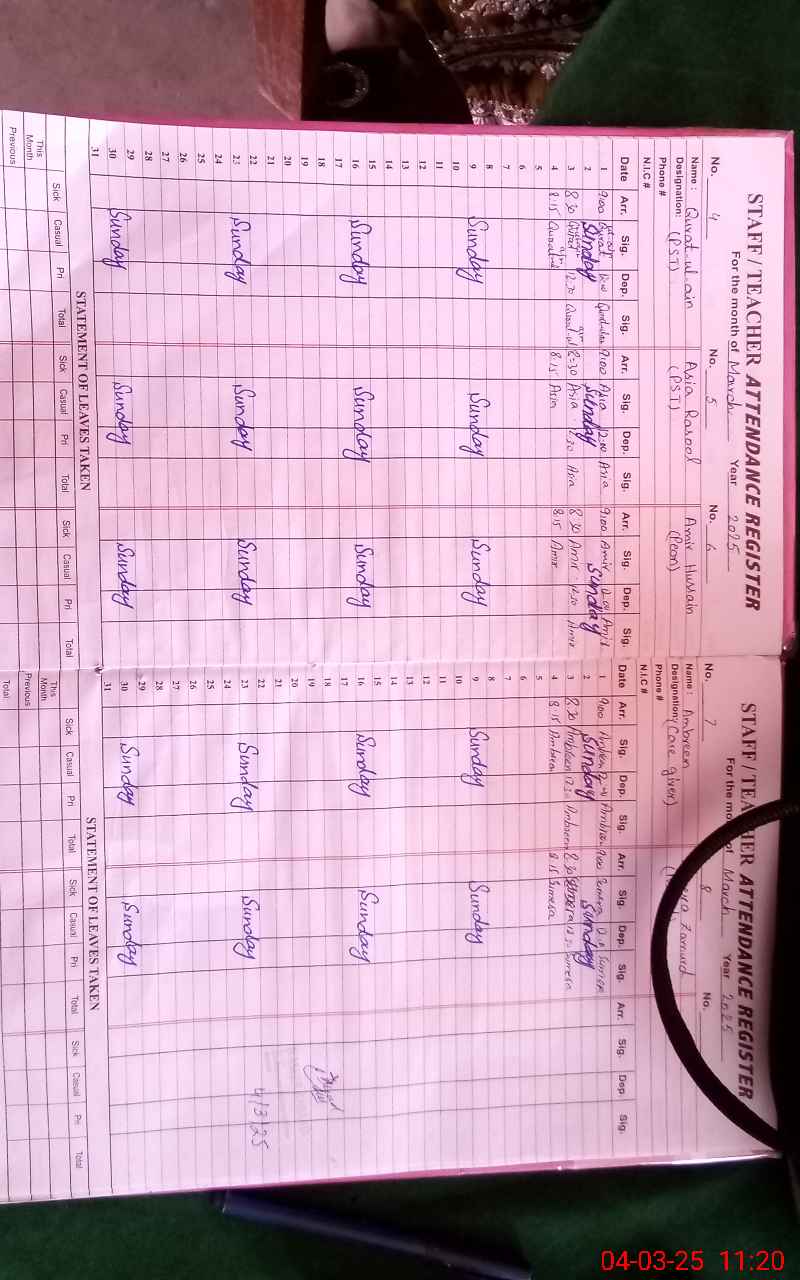 STAFF / TEACHER ATTENDANCE REGISTER
For the month of March Year 2025
No. 4 No. 5 No. 6
Name: Qurat-ul-ain Asia Rasool Amir Hussain
Designation: (PST) (PST) (Peon)
Phone #
N.I.C #
Date Arr. Sig. Dep. Sig. Arr. Sig. Dep. Sig. Arr. Sig. Dep. Sig.
1 9:00 12:00 9:00 Asia 12:00 Asia 9:00 Amir 12:00 Amir
2 Sunday Sunday Sunday
3 8:30 12:30 8:30 Asia 12:30 Asia 8:30 Amir 12:30 Amir
4 8:15 8:15 Asia 8:15 Amir
5
6
7
8
9 Sunday Sunday Sunday
10
11
12
13
14
15
16 Sunday Sunday Sunday
17
18
19
20
21
22
23 Sunday Sunday Sunday
24
25
26
27
28
29
30 Sunday Sunday Sunday
31
STATEMENT OF LEAVES TAKEN
Sick Casual Pri Total Sick Casual Pri Total Sick Casual Pri Total
This Month
Previous
STAFF / TEACHER ATTENDANCE REGISTER
For the mo of March Year 2025
No. 7 8 No.
Name: Ambreen Zamurd
Designation: (Care giver)
Phone #
N.I.C #
Date Arr. Sig. Dep. Sig. Arr. Sig. Dep. Sig. Arr. Sig. Dep. Sig.
1 9:00 Ambreen 9:00 Sumera
2 Sunday Sunday
3 8:30 Ambreen 12:30 Ambreen 8:30 12:30 Sumera
4 8:15 Ambreen 8:15 Sumera
5
6
7
8
9 Sunday Sunday
10
11
12
13
14
15
16 Sunday Sunday
17
18
19
20
21
22
23 Sunday Sunday
24
25
26
27
28
29
30 Sunday Sunday
31
4/3/25
STATEMENT OF LEAVES TAKEN
Sick Casual Pri Total Sick Casual Pri Total Sick Casual Pri Total
This Month
Previous
Total
04-03-25 11:20